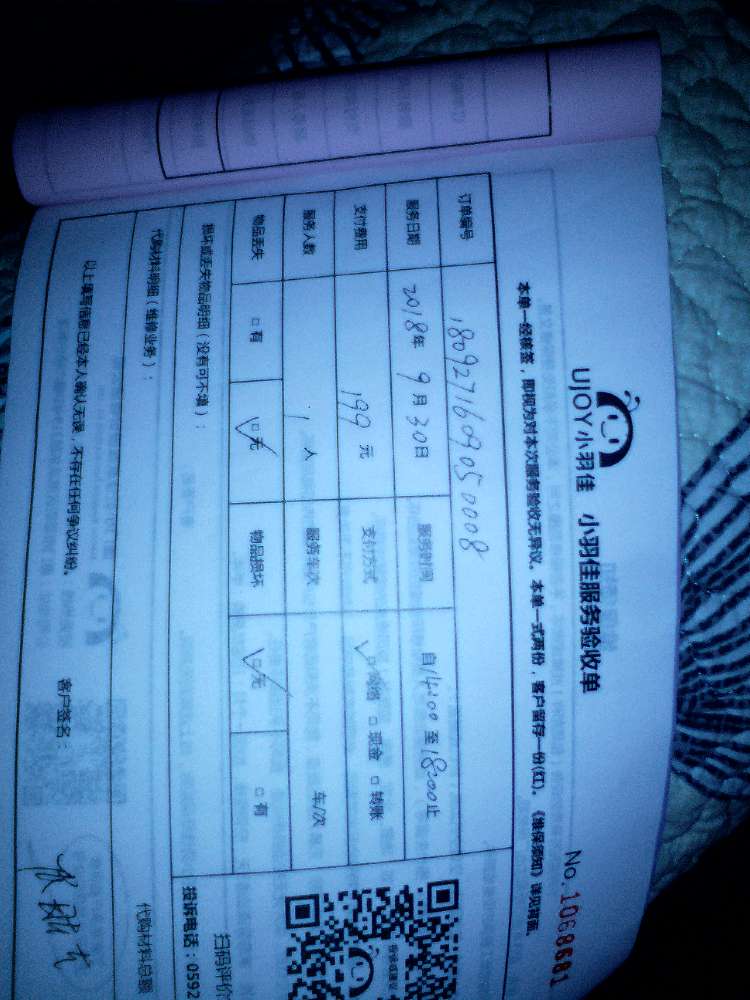 UJOY小羽佳 小羽佳服务验收单
No.1068681
本单一经核签，即视为对本次服务验收无异议。本单一式两份，客户留存一份(红)。《维保须知》详见背面。
订单编号 1809271609050008
服务日期 2018年9月30日 服务时间 自14:00至18:00止
支付费用 199元 支付方式 ☑网络 □现金 □转账
服务人数 1人 服务车次 车/次
物品丢失 □有 ☑无 物品损坏 ☑无 □有
损坏或丢失物品明细（没有可不填）：
代购材料明细（维修业务）：
代购材料总额
以上填写信息已经本人确认无误，不存在任何争议纠纷。 客户签名：
扫码评价
投诉电话：0592